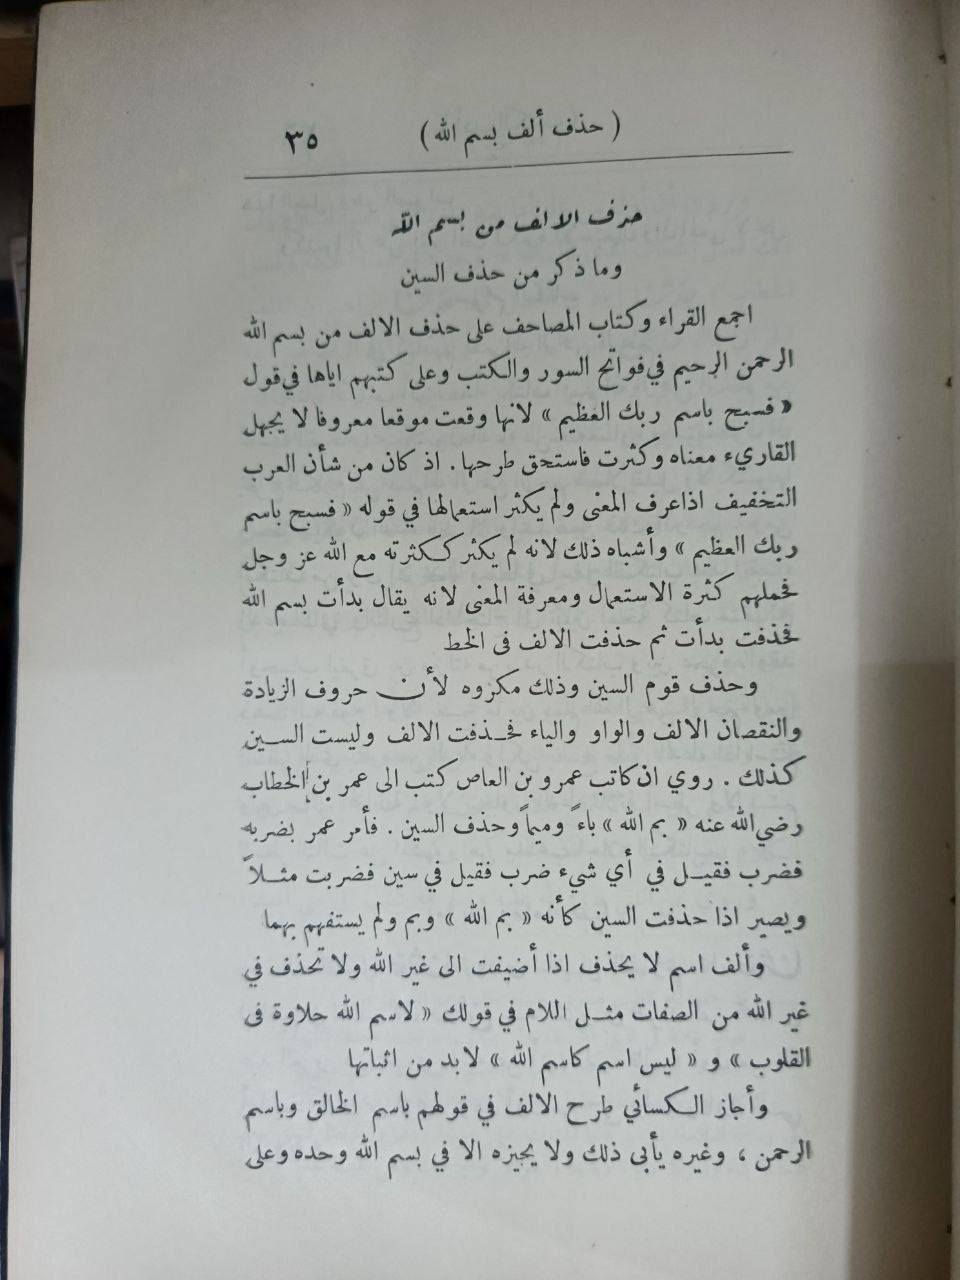 ( حذف ألف بسم الله )
٣٥
حذف الالف من بسم الله
وما ذكر من حذف السين
اجمع القراء وكتاب المصاحف على حذف الالف من بسم الله
الرحمن الرحيم في فواتح السور والكتب وعلى كتبهم اياها في قول
« فسبح باسم ربك العظيم » لانها وقعت موقعا معروفا لا يجهل
القاريء معناه وكثرت فاستحق طرحها . اذ كان من شأن العرب
التخفيف اذا عرف المعنى ولم يكثر استعمالها في قوله « فسبح باسم
ربك العظيم » وأشباه ذلك لانه لم يكثر ككثرته مع الله عز وجل
فحملهم كثرة الاستعمال ومعرفة المعنى لانه يقال بدأت بسم الله
فحذفت بدأت ثم حذفت الالف فى الخط
وحذف قوم السين وذلك مكروه لأن حروف الزيادة
والنقصان الالف والواو والياء فحذفت الالف وليست السين
كذلك . روي ان كاتب عمرو بن العاص كتب الى عمر بن الخطاب
رضي الله عنه « بم الله » باءً وميماً وحذف السين . فأمر عمر بضربه
فضرب فقيل في أي شيء ضرب فقيل في سين فضربت مثلاً
ويصير اذا حذفت السين كأنه « بم الله » وبم ولم يستفهم بهما
وألف اسم لا يحذف اذا أضيفت الى غير الله ولا تحذف في
غير الله من الصفات مثل اللام في قولك « لاسم الله حلاوة فى
القلوب » و « ليس اسم كاسم الله » لا بد من اثباتها
وأجاز الكسائي طرح الالف في قولهم باسم الخالق وباسم
الرحمن ، وغيره يأبى ذلك ولا يجيزه الا في بسم الله وحده وعلى